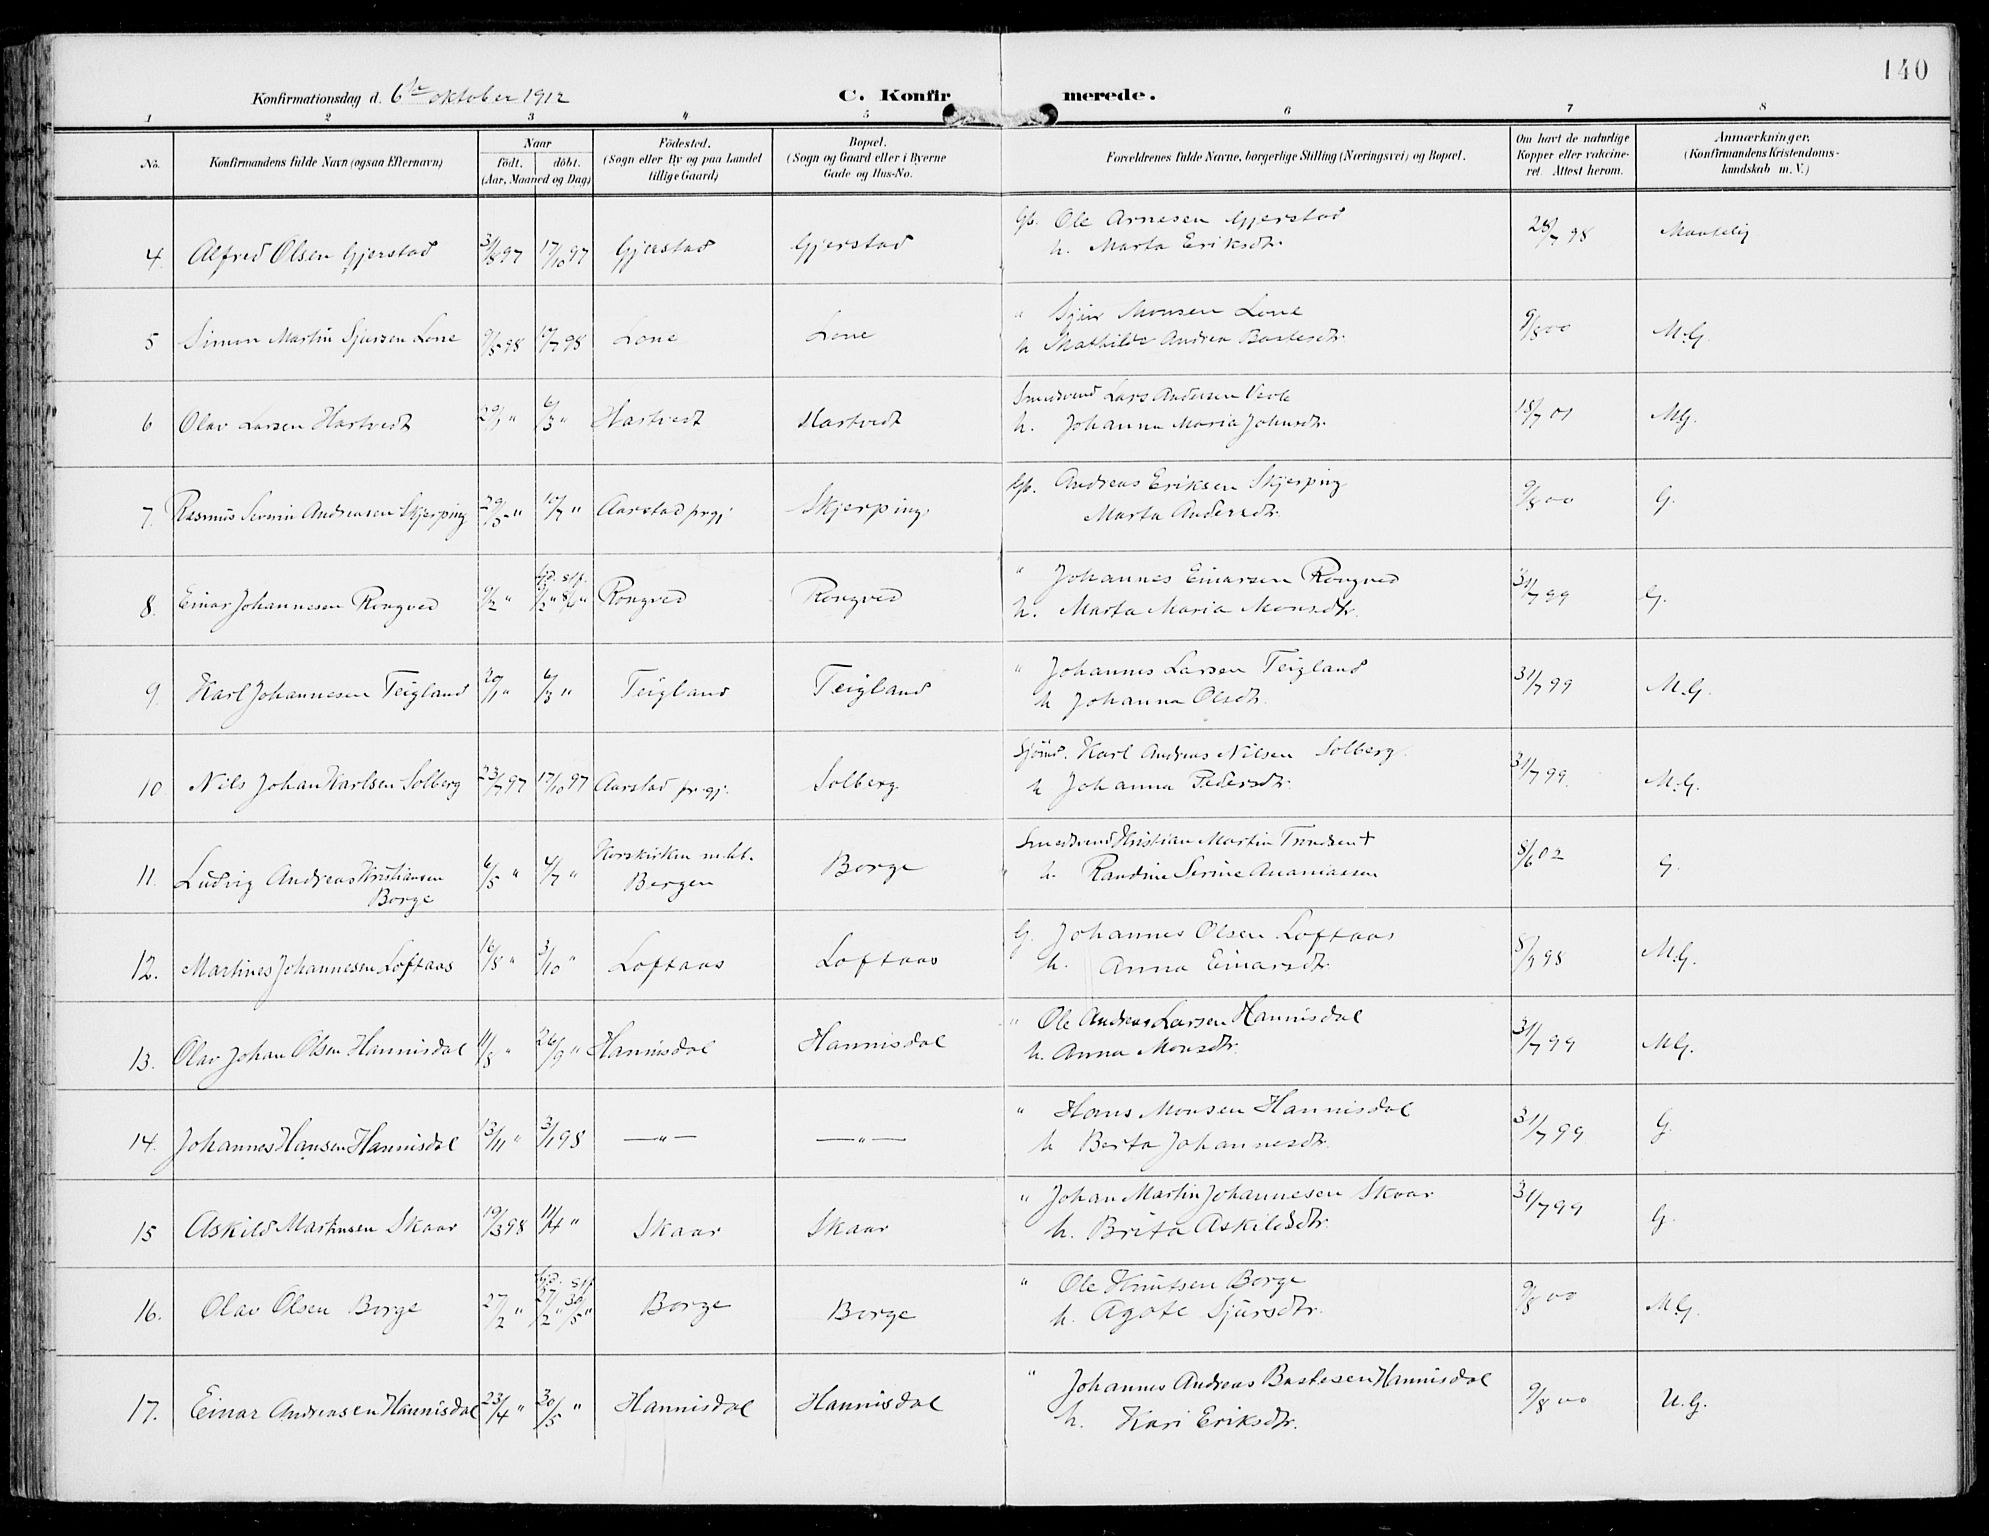 140
Konfirmationsdag d. 6te oktober 1912 C. Konfirmerede.
1 2 3 4 5 6 7 8
No. Konfirmandens fulde Navn (ogsaa Efternavn) Naar födt. döbt. (Aar, Maaned og Dag) Födested. (Sogn eller By og paa Landet tillige Gaard) Bopæl. (Sogn og Gaard eller i Byerne Gade og Hus-No. Forældrenes fulde Navne, borgerlige Stilling (Næringsvei) og Bopæl. Om havt de naturlige Kopper eller vakcineret. Attest herom. Anmærkninger. (Konfirmandens Kristendomskundskab m. V.)
Gb. Ole Arnesen Gjerstad
4. Alfred Olsen Gjerstad 31/8 97 17/10 97 Gjerstad Gjerstad h. Marta Eriksdtr. 28/7 98 Maadelig
" Sjur Monsen Lone
5 Simon Martin Sjursen Lone 9/5 98 17/7 98 Lone Lone h Mathilde Andrea Bastesdtr. 9/8 00 M.G.
Smedsvend Lars Andersen Revle
6 Olav Larsen Hartvedt 29/1 " 6/3 " Hartvedt Hartvedt h. Johanna Maria Johnsdtr. 18/7 01 M.G.
Gb. Andreas Eriksen Skjerping
7. Rasmus Severin Andreasen Skjerping 29/5 " 10/7 " Aarstad prgj Skjerping Marta Andersdtr. 9/8 00 G.
" Johannes Einarsen Rongved
8. Einar Johannesen Rongved 9/2 " hjd. stf. 9/2 " 8/6 " Rongved Rongved h. Marta Maria Monsdtr. 31/7 99 G.
" Johannes Larsen Teigland
9. Karl Johannesen Teigland 20/1 " 6/3 " Teigland Teigland h Johanna Olsdtr. 31/7 99 M.G.
Sjömd. Karl Andreas Nilsen Solberg.
10 Nils Johan Karlsen Solberg 23/7 97 17/10 97 Aarstad prgj. Solberg h Johanna Pedersdtr. 31/7 99. M.G.
Smedsvend Kristian Martin Trondsen +
11. Ludvig Andreas Kristiansen Borge 6/5 " 4/7 " Korskirken mht. Bergen Borge h. Randine Serine Ananiassen 5/6 02 G.
G. Johannes Olsen Loftaas
12. Martines Johannesen Loftaas 16/8 " 3/10 " Loftaas Loftaas h. Anna Einarsdtr. 5/9 98 M.G.
" Ole Andreas Larsen Hannisdal
13. Olav Johan Olsen Hannisdal 11/8 " 26/9 " Hannisdal Hannisdal h. Anna Monsdtr. 31/7 99 M.G.
" Hans Monsen Hannisdal
14. Johannes Hansen Hannisdal 13/11 " 3/1 98 — " — — " — h Berta Johannesdtr. 31/7 99 G.
" Johan Martin Johannesen Skaar
15 Askild Martinsen Skaar 19/3 98 11/4 " Skaar Skaar h. Brita Askildsdtr. 31/7 99 G.
" Ole Knutsen Borge
16. Olav Olsen Borge 27/2 " hjd. stf 27/2 " 30/5 " Borge Borge h. Agate Sjursdtr. 9/8 00 M.G.
" Johannes Andreas Bastesen Hannisdal
17. Einar Andreasen Hannisdal 23/4 " 30/5 " Hannisdal Hannisdal h. Kari Eriksdtr. 9/8 00 U.G.